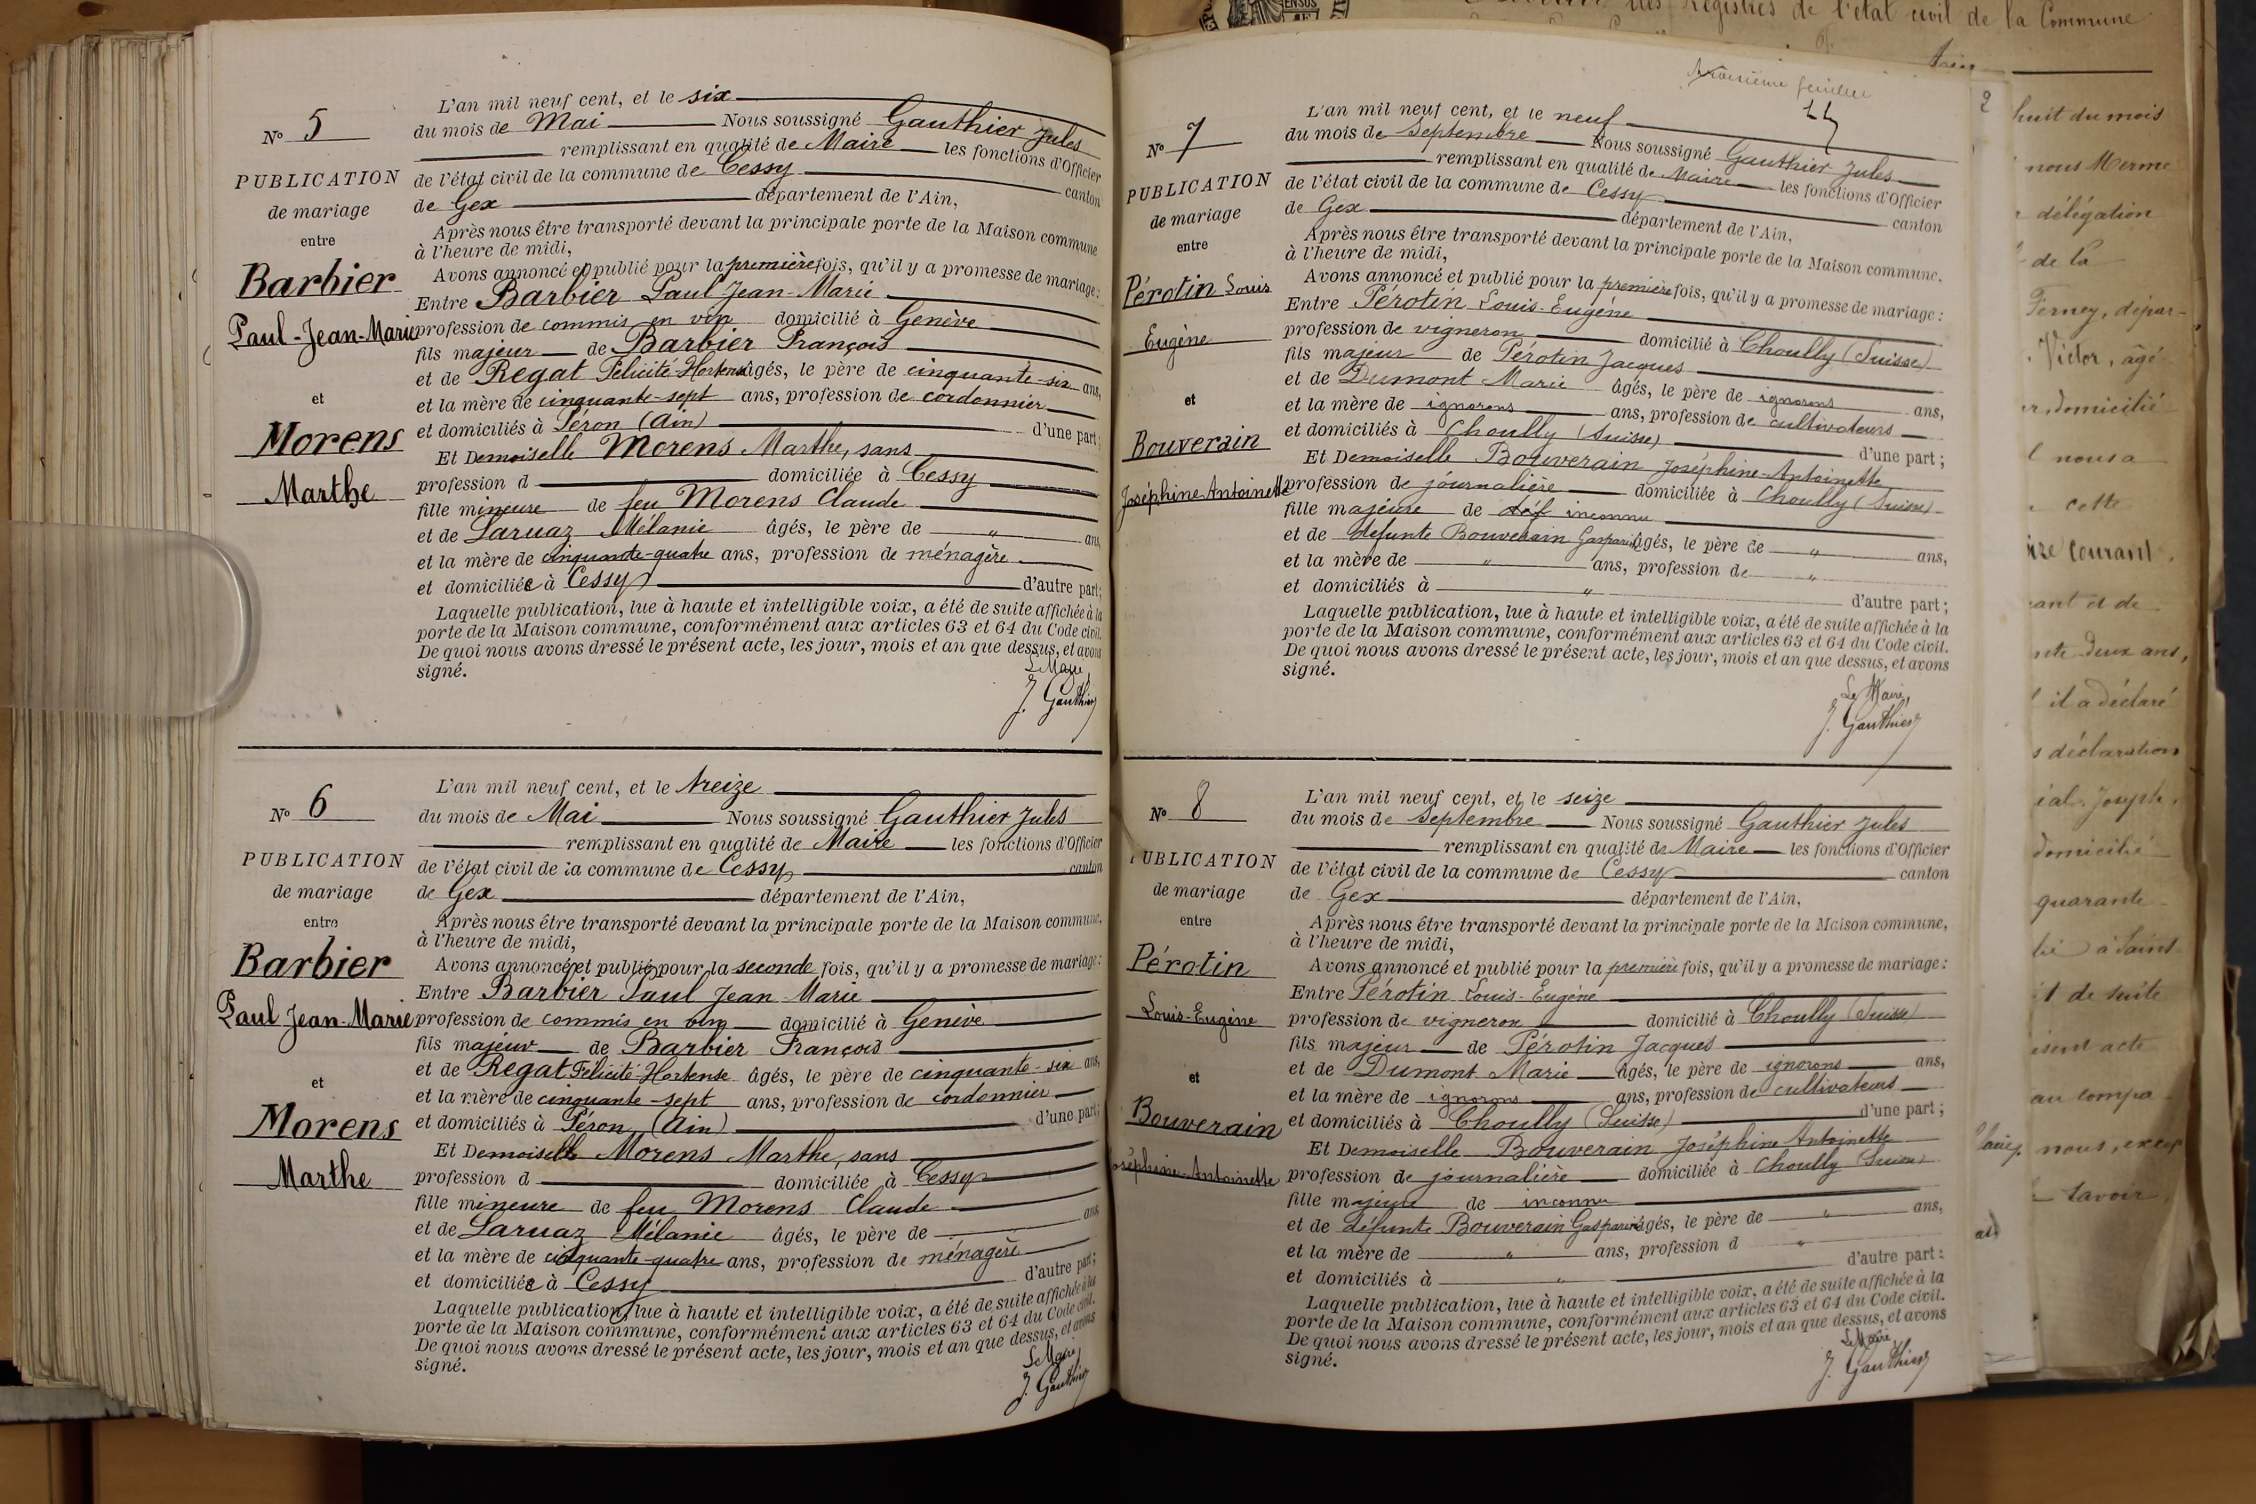 N° 5
PUBLICATION
de mariage
entre
Barbier
Paul-Jean-Marie
et
Morens
Marthe
L'an mil neuf cent, et le six
du mois de Mai Nous soussigné Gauthier Jules
remplissant en qualité de Maire les fonctions d'Officier
de l'état civil de la commune de Cessy canton
de Gex département de l'Ain,
Après nous être transporté devant la principale porte de la Maison commune
à l'heure de midi,
Avons annoncé et publié pour la première fois, qu'il y a promesse de mariage:
Entre Barbier Paul Jean-Marie
profession de commis en vin domicilié à Genève
fils majeur de Barbier François
et de Regat Félicité-Hortense âgés, le père de cinquante-six ans,
et la mère de cinquante-sept ans, profession de cordonnier
et domiciliés à Péron (Ain) d'une part;
Et Demoiselle Morens Marthe, sans
profession d domiciliée à Cessy
fille mineure de feu Morens Claude
et de Laruaz Mélanie âgés, le père de " ans,
et la mère de cinquante-quatre ans, profession de ménagère
et domiciliée à Cessy d'autre part;
Laquelle publication, lue à haute et intelligible voix, a été de suite affichée à la
porte de la Maison commune, conformément aux articles 63 et 64 du Code civil.
De quoi nous avons dressé le présent acte, les jour, mois et an que dessus, et avons
signé.
Le Maire,
J. Gauthier
N° 6
PUBLICATION
de mariage
entre
Barbier
Paul Jean-Marie
et
Morens
Marthe
L'an mil neuf cent, et le treize
du mois de Mai Nous soussigné Gauthier Jules
remplissant en qualité de Maire les fonctions d'Officier
de l'état civil de la commune de Cessy canton
de Gex département de l'Ain,
Après nous être transporté devant la principale porte de la Maison commune,
à l'heure de midi,
Avons annoncé et publié pour la seconde fois, qu'il y a promesse de mariage:
Entre Barbier Paul Jean-Marie
profession de commis en vin domicilié à Genève
fils majeur de Barbier François
et de Regat Félicité-Hortense âgés, le père de cinquante-six ans,
et la mère de cinquante-sept ans, profession de cordonnier
et domiciliés à Péron (Ain) d'une part;
Et Demoiselle Morens Marthe, sans
profession d domiciliée à Cessy
fille mineure de feu Morens Claude
et de Laruaz Mélanie âgés, le père de ans,
et la mère de cinquante-quatre ans, profession de ménagère
et domiciliée à Cessy d'autre part;
Laquelle publication, lue à haute et intelligible voix, a été de suite affichée à la
porte de la Maison commune, conformément aux articles 63 et 64 du Code civil.
De quoi nous avons dressé le présent acte, les jour, mois et an que dessus, et avons
signé.
Le Maire,
J. Gauthier
troisième feuillet
N° 7
PUBLICATION
de mariage
entre
Pérotin Louis
Eugène
et
Bouverain
Joséphine-Antoinette
L'an mil neuf cent, et le neuf
du mois de Septembre Nous soussigné Gauthier Jules
remplissant en qualité de Maire les fonctions d'Officier
de l'état civil de la commune de Cessy canton
de Gex département de l'Ain,
Après nous être transporté devant la principale porte de la Maison commune,
à l'heure de midi,
Avons annoncé et publié pour la première fois, qu'il y a promesse de mariage:
Entre Pérotin Louis-Eugène
profession de vigneron domicilié à Choully (Suisse)
fils majeur de Pérotin Jacques
et de Dumont Marie âgés, le père de ignorons ans,
et la mère de ignorons ans, profession de cultivateurs
et domiciliés à Choully (Suisse) d'une part;
Et Demoiselle Bouverain Joséphine-Antoinette
profession de journalière domiciliée à Choully (Suisse)
fille majeure de inconnu
et de défunte Bouverain Gasparine âgés, le père de " ans,
et la mère de " ans, profession de "
et domiciliés à " d'autre part;
Laquelle publication, lue à haute et intelligible voix, a été de suite affichée à la
porte de la Maison commune, conformément aux articles 63 et 64 du Code civil.
De quoi nous avons dressé le présent acte, les jour, mois et an que dessus, et avons
signé.
Le Maire,
J. Gauthier
N° 8
PUBLICATION
de mariage
entre
Pérotin
Louis-Eugène
et
Bouverain
Joséphine-Antoinette
L'an mil neuf cent, et le seize
du mois de Septembre Nous soussigné Gauthier Jules
remplissant en qualité de Maire les fonctions d'Officier
de l'état civil de la commune de Cessy canton
de Gex département de l'Ain,
Après nous être transporté devant la principale porte de la Maison commune,
à l'heure de midi,
Avons annoncé et publié pour la première fois, qu'il y a promesse de mariage:
Entre Pérotin Louis-Eugène
profession de vigneron domicilié à Choully (Suisse)
fils majeur de Pérotin Jacques
et de Dumont Marie âgés, le père de ignorons ans,
et la mère de ignorons ans, profession de cultivateurs
et domiciliés à Choully (Suisse) d'une part;
Et Demoiselle Bouverain Joséphine Antoinette
profession de journalière domiciliée à Choully (Suisse)
fille majeure de inconnu
et de défunte Bouverain Gasparine âgés, le père de " ans,
et la mère de " ans, profession d "
et domiciliés à " d'autre part:
Laquelle publication, lue à haute et intelligible voix, a été de suite affichée à la
porte de la Maison commune, conformément aux articles 63 et 64 du Code civil.
De quoi nous avons dressé le présent acte, les jour, mois et an que dessus, et avons
signé.
Le Maire
J. Gauthier
2
des registres de l'état civil de la Commune
huit du mois
nous Merme
délégation
de la
Ferney, dépar-
Victor, âgé
domicilié
nous a
cette
courant.
et de
deux ans,
il a déclaré
déclaration
Joseph,
domicilié
quarante
à Saint
et de suite
acte
au compa
nous,
savoir